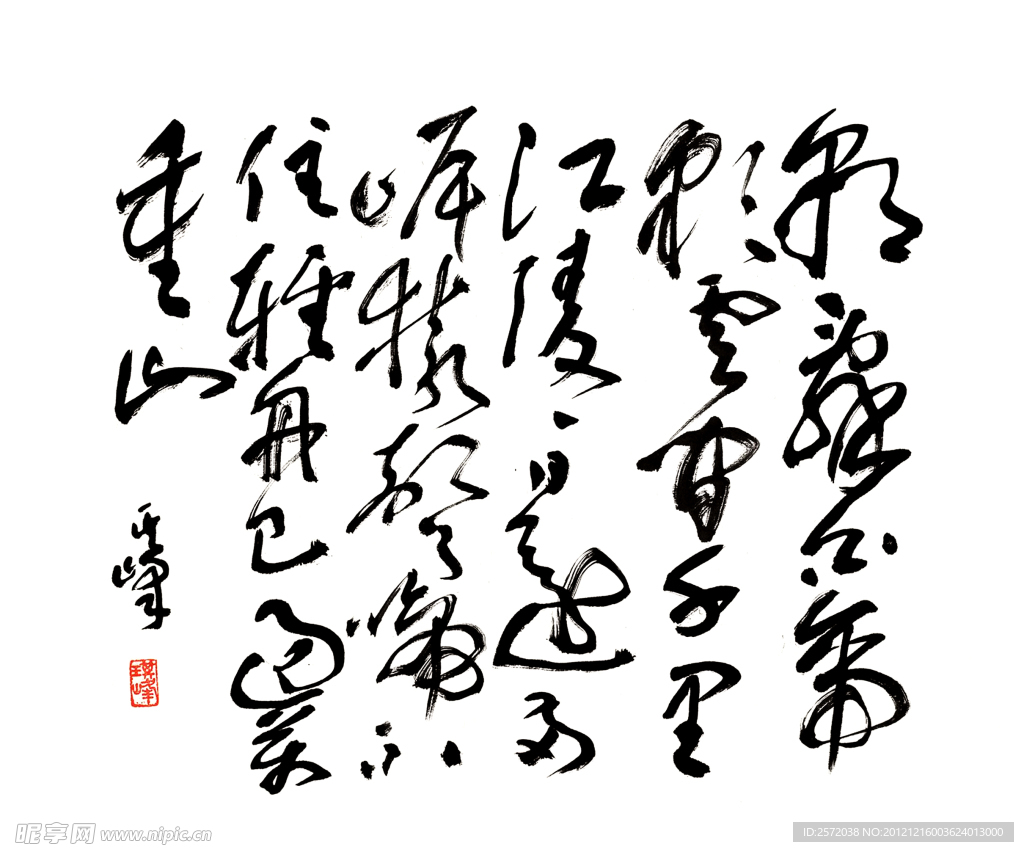 朝辭白帝
彩雲間千里
江陵一日還兩
岸猿聲啼不
住輕舟已過萬
重山
昵享网 www.nipic.cn
ID:2572038 NO:20121216003624013000